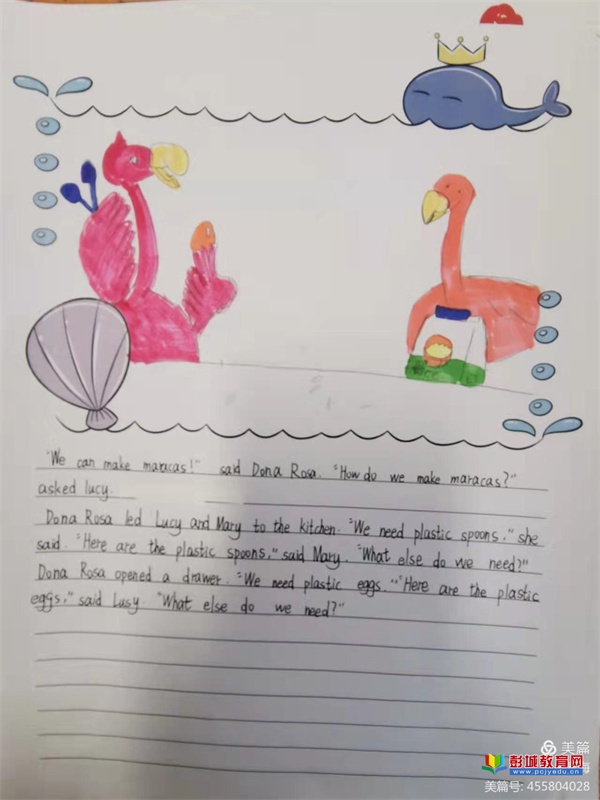 "We can make maracas!" said Dona Rosa. "How do we make maracas?"
asked lucy.
Dona Rosa led Lucy and Mary to the kitchen. "We need plastic spoons," she
said. "Here are the plastic spoons," said Mary. "What else do we need?"
Dona Rosa opened a drawer. "We need plastic eggs." "Here are the plastic
eggs," said Lusy. "What else do we need?"
美篇
彭城教育网
www.pcjyedu.cn
美篇号: 455804028